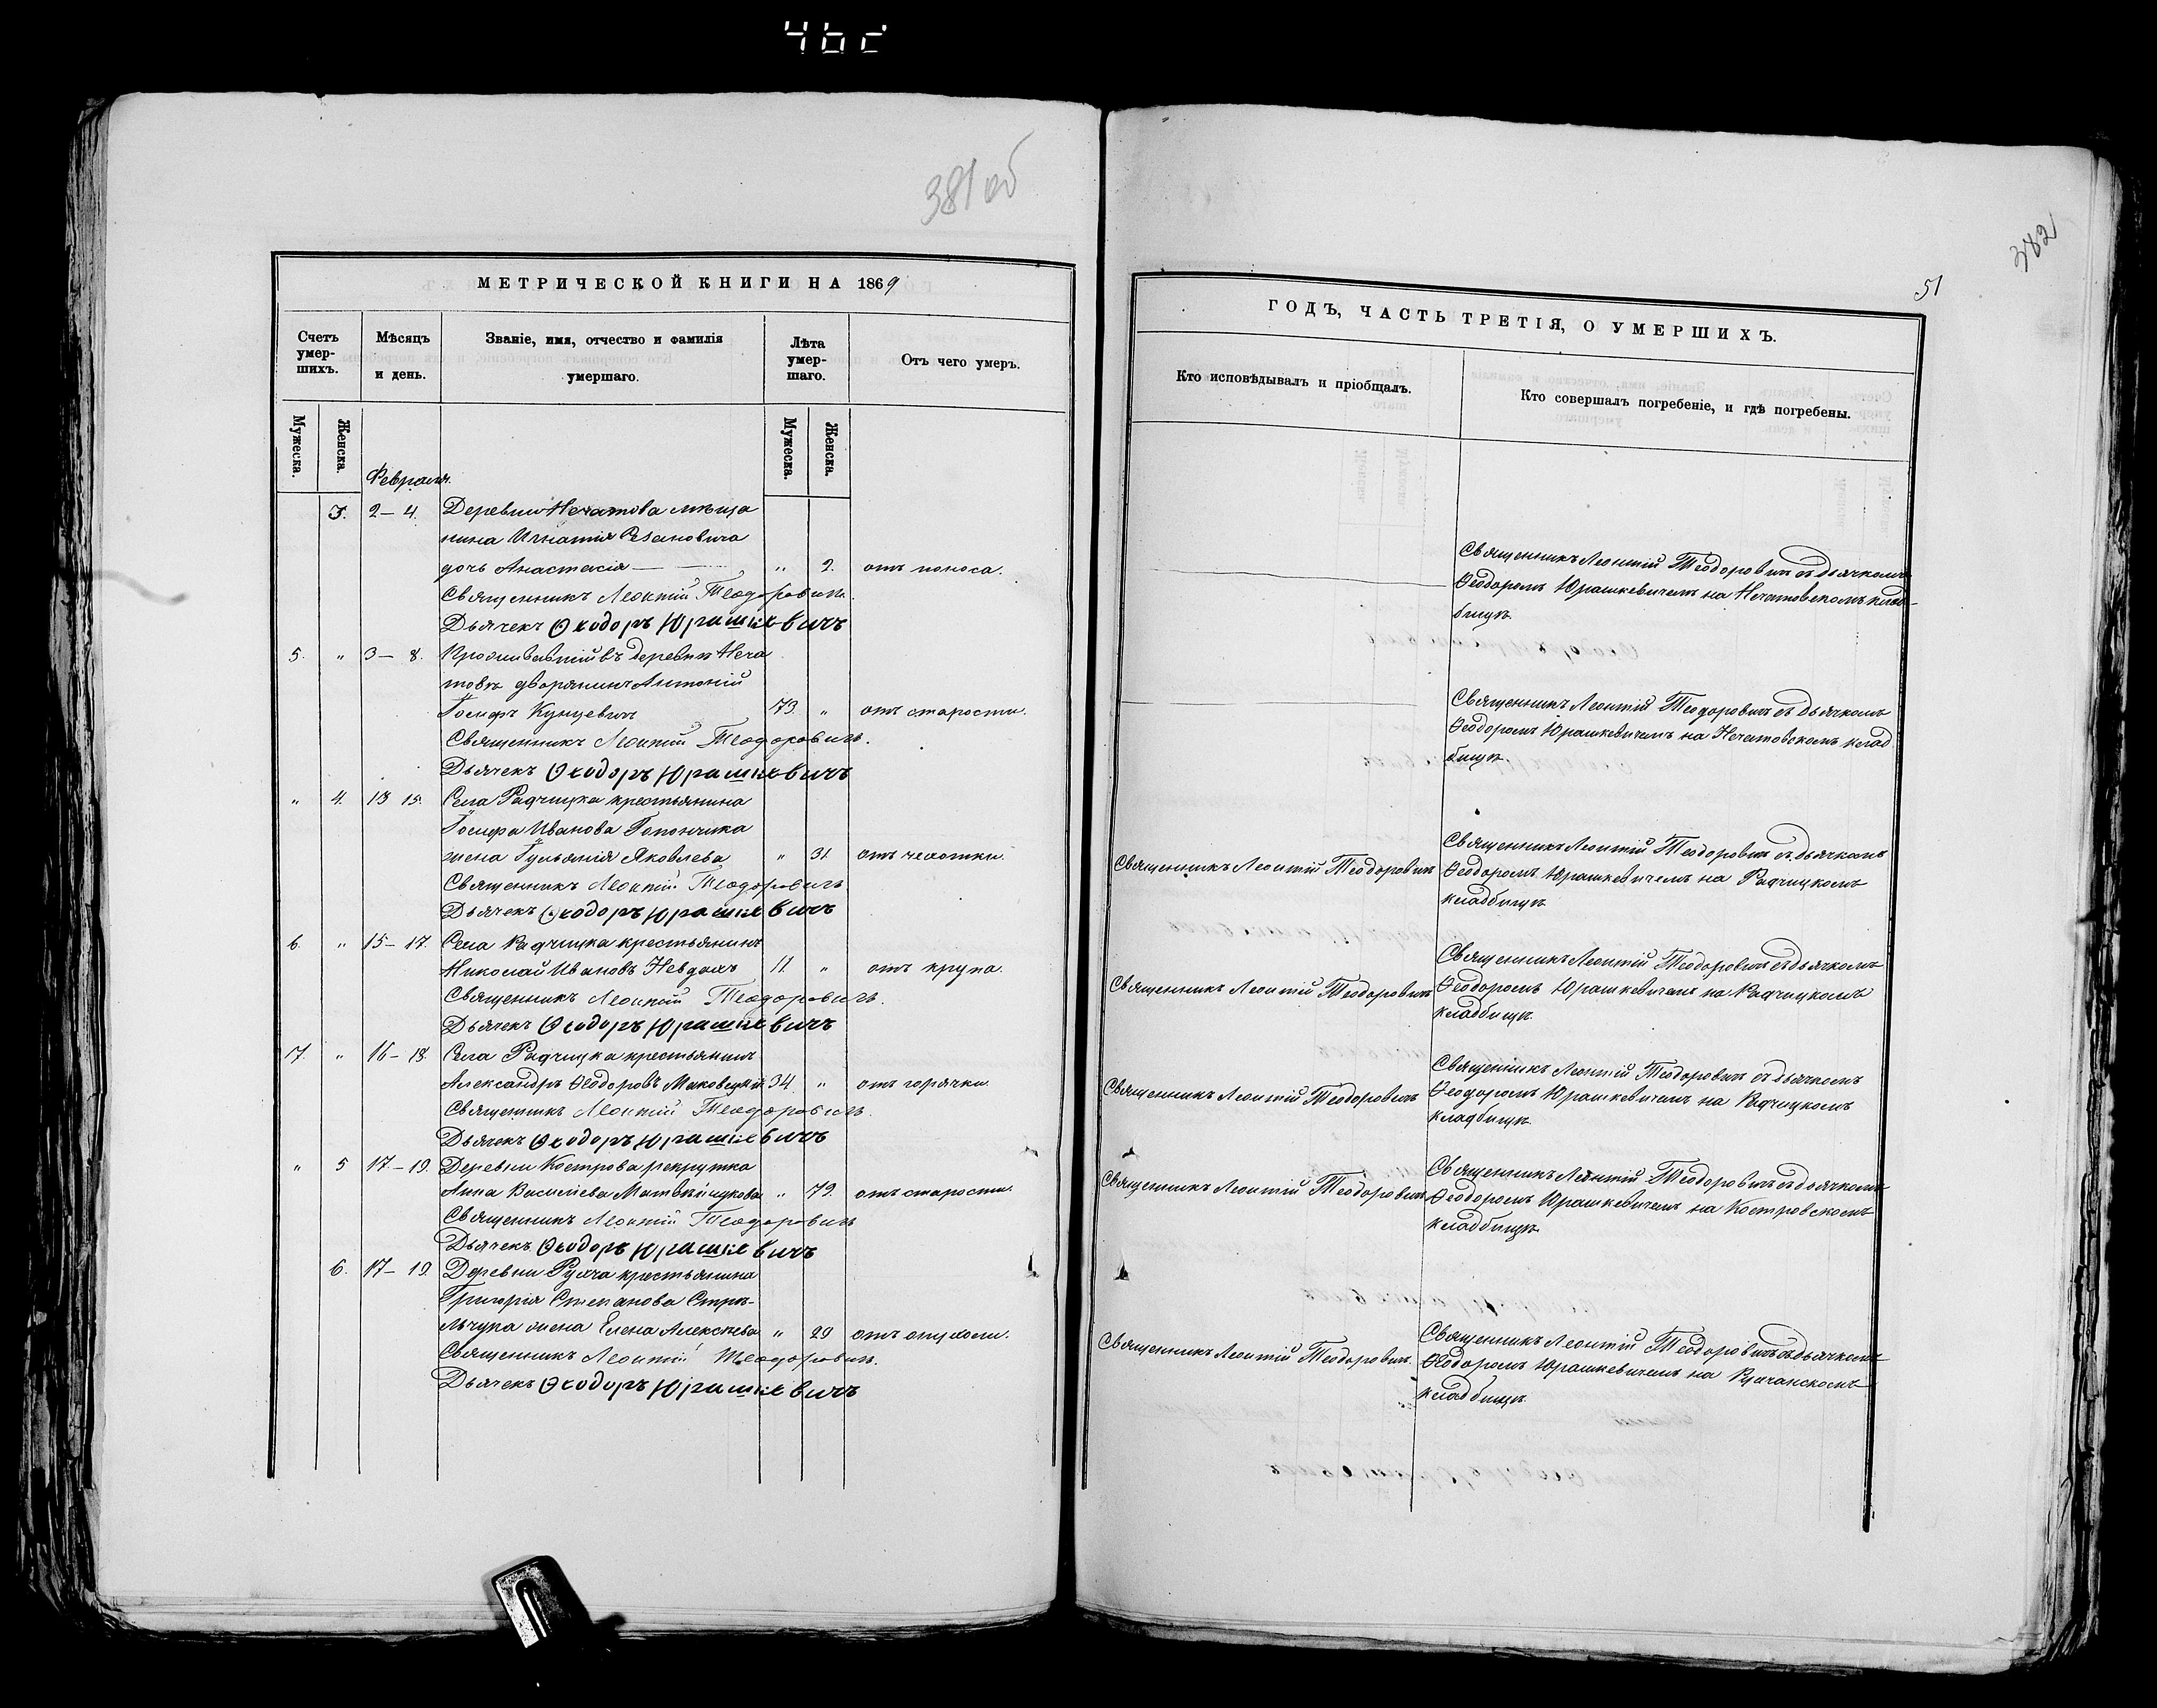 4bc
381 об
МЕТРИЧЕСКОЙ КНИГИ НА 1869
Счетъ умер-шихъ.
Мѣсяцъ и день.
Званіе, имя, отчество и фамилія умершаго.
Лѣта умер-шаго.
Отъ чего умеръ.
Мужеска.
Женска.
Мужеска.
Женска.
Февраля.
3. 2–4. Деревни Нечатова мѣща
нина Игнатія Резановича
дочь Анастасія — " 2. отъ поноса.
Священникъ Леонтій Теодоровичъ.
Дьячекъ Ѳеодоръ Юрашкевичъ
5. " 3– 8. Проживавшій въ деревнѣ Неча
товѣ дворянинъ Антоній
Іосифъ Кунцевичъ 73. " отъ старости.
Священникъ Леонтій Теодоровичъ.
Дьячекъ Ѳеодоръ Юрашкевичъ
" 4. 13 15. Села Радчицка крестьянина
Іосифа Иванова Гопончика
жена Гульянія Яковлева " 31 отъ чесотки.
Священникъ Леонтій Теодоровичъ
Дьячекъ Ѳеодоръ Юрашкевичъ
6. " 15–17. Села Радчицка крестьянинъ
Николай Ивановъ Невдахъ 11. " отъ крупа.
Священникъ Леонтій Теодоровичъ.
Дьячекъ Ѳеодоръ Юрашкевичъ
17. " 16–18. Села Радчицка крестьянинъ
Александръ Ѳеодоровъ Маковецкій 34 " отъ горячки.
Священникъ Леонтій Теодоровичъ.
Дьячекъ Ѳеодоръ Юрашкевичъ
" 5 17–19. Деревни Кострова рекрутка
Анна Васильева Матвѣйчукова " 79. отъ старости.
Священникъ Леонтій Теодоровичъ
Дьячекъ Ѳеодоръ Юрашкевичъ
6. 17–19. Деревни Рухча крестьянина
Григорія Степанова Стрѣ-
льчука жена Елена Алексѣева " 29 отъ опухоли.
Священникъ Леонтій Теодоровичъ.
Дьячекъ Ѳеодоръ Юрашкевичъ
382
51
ГОДЪ, ЧАСТЬ ТРЕТІЯ, О УМЕРШИХЪ.
Кто исповѣдывалъ и пріобщалъ.
Кто совершалъ погребеніе, и гдѣ погребены.
Священникъ Леонтій Теодоровичъ съ дьячкомъ
Ѳеодоромъ Юрашкевичемъ на Нечатовскомъ клад-
бищѣ.
Священникъ Леонтій Теодоровичъ съ дьячкомъ
Ѳеодоромъ Юрашкевичемъ на Нечатовскомъ клад
бищѣ.
Священникъ Леонтій Теодоровичъ
Священникъ Леонтій Теодоровичъ съ дьячкомъ
Ѳеодоромъ Юрашкевичемъ на Радчицкомъ
кладбищѣ
Священникъ Леонтій Теодоровичъ
Священникъ Леонтій Теодоровичъ съ дьячкомъ
Ѳеодоромъ Юрашкевичемъ на Радчицкомъ
кладбищѣ.
Священникъ Леонтій Теодоровичъ
Священникъ Леонтій Теодоровичъ съ дьячкомъ
Ѳеодоромъ Юрашкевичемъ на Радчицкомъ
кладбищѣ.
Священникъ Леонтій Теодоровичъ
Священникъ Леонтій Теодоровичъ съ дьячкомъ
Ѳеодоромъ Юрашкевичемъ на Костровскомъ
кладбищѣ.
Священникъ Леонтій Теодоровичъ.
Священникъ Леонтій Теодоровичъ съ дьячкомъ
Ѳеодоромъ Юрашкевичемъ на Рухчанскомъ
кладбищѣ.